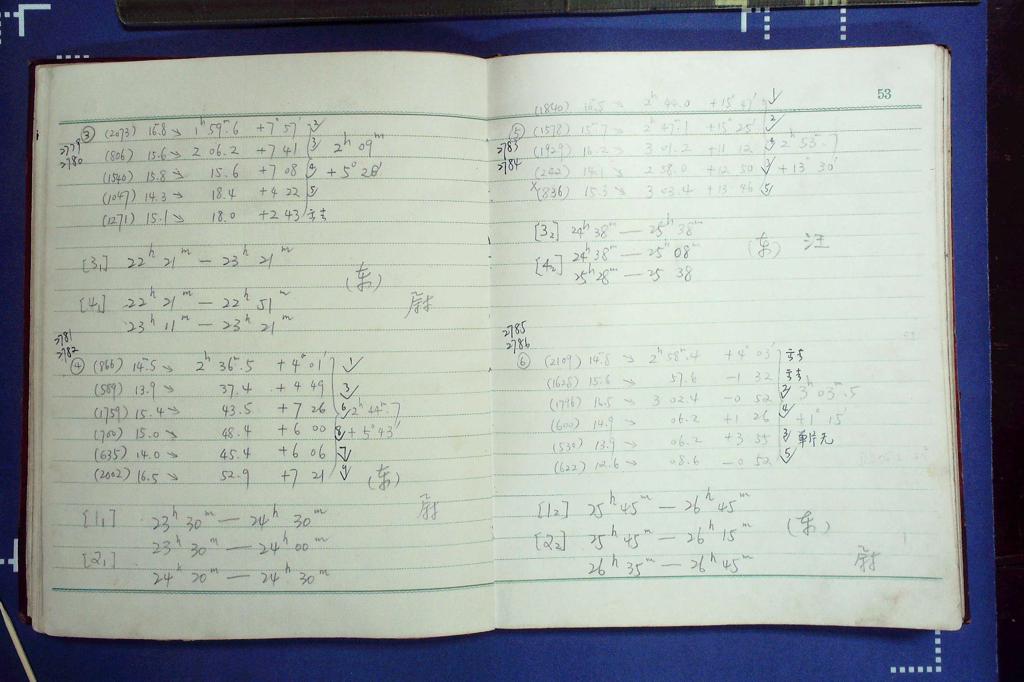 2779
2780
③ (2073) 16.8 → 1ʰ 59ᵐ.6 +7° 57′ 2
(806) 15.6 → 2 06.2 +7 41 3 2ʰ 09ᵐ
(1540) 15.8 → 15.6 +7 08 4 +5° 28′
(1047) 14.3 → 18.4 +4 22 5
(1271) 15.1 → 18.0 +2 43
[3₁] 22ʰ 21ᵐ — 23ʰ 21ᵐ
(东)
[4₁] 22ʰ 21ᵐ — 22ʰ 51ᵐ
23ʰ 11ᵐ — 23ʰ 21ᵐ
2781
2782
④ (866) 14.5 → 2ʰ 36ᵐ.5 +4° 01′ 1
(589) 13.9 → 37.4 +4 49 3
(1759) 15.4 → 43.5 +7 26 6 2ʰ 44ᵐ.7
(700) 15.0 → 48.4 +6 00 8 +5° 43′
(635) 14.0 → 45.4 +6 06 7
(2002) 16.5 → 52.9 +7 21 9 (东)
[1₁] 23ʰ 30ᵐ — 24ʰ 30ᵐ
[2₁] 23ʰ 30ᵐ — 24ʰ 00ᵐ
24ʰ 20ᵐ — 24ʰ 30ᵐ
53
(1840) 16.5 → 2ʰ 44.0 +15° 47′ 1
2783
2784
⑤ (1578) 15.7 → 2ʰ 47.1 +15° 25′ 2
(1929) 16.2 → 3 01.2 +11 12 2ʰ 55ᵐ.7
(242) 14.1 → 2 58.0 +12 50 +13° 30′
(836) 15.3 → 3 03.4 +13 46 5
[3₂] 24ʰ 38ᵐ — 25ʰ 38ᵐ
(东) 汪
[4₂] 24ʰ 38ᵐ — 25ʰ 08ᵐ
25ʰ 28ᵐ — 25 38
2785
2786
⑥ (2109) 14.8 → 2ʰ 58ᵐ.4 +4° 03′
(1628) 15.6 → 57.6 −1 32
(1796) 16.5 → 3 02.4 −0 52 2 3ʰ 03ᵐ.5
(600) 14.9 → 06.2 +1 26 4 +1° 15′
(530) 13.9 → 06.2 +3 35 3 单片无
(622) 12.6 → 08.6 −0 52 5
[1₂] 25ʰ 45ᵐ — 26ʰ 45ᵐ
(东)
[2₂] 25ʰ 45ᵐ — 26ʰ 15ᵐ
26ʰ 35ᵐ — 26ʰ 45ᵐ